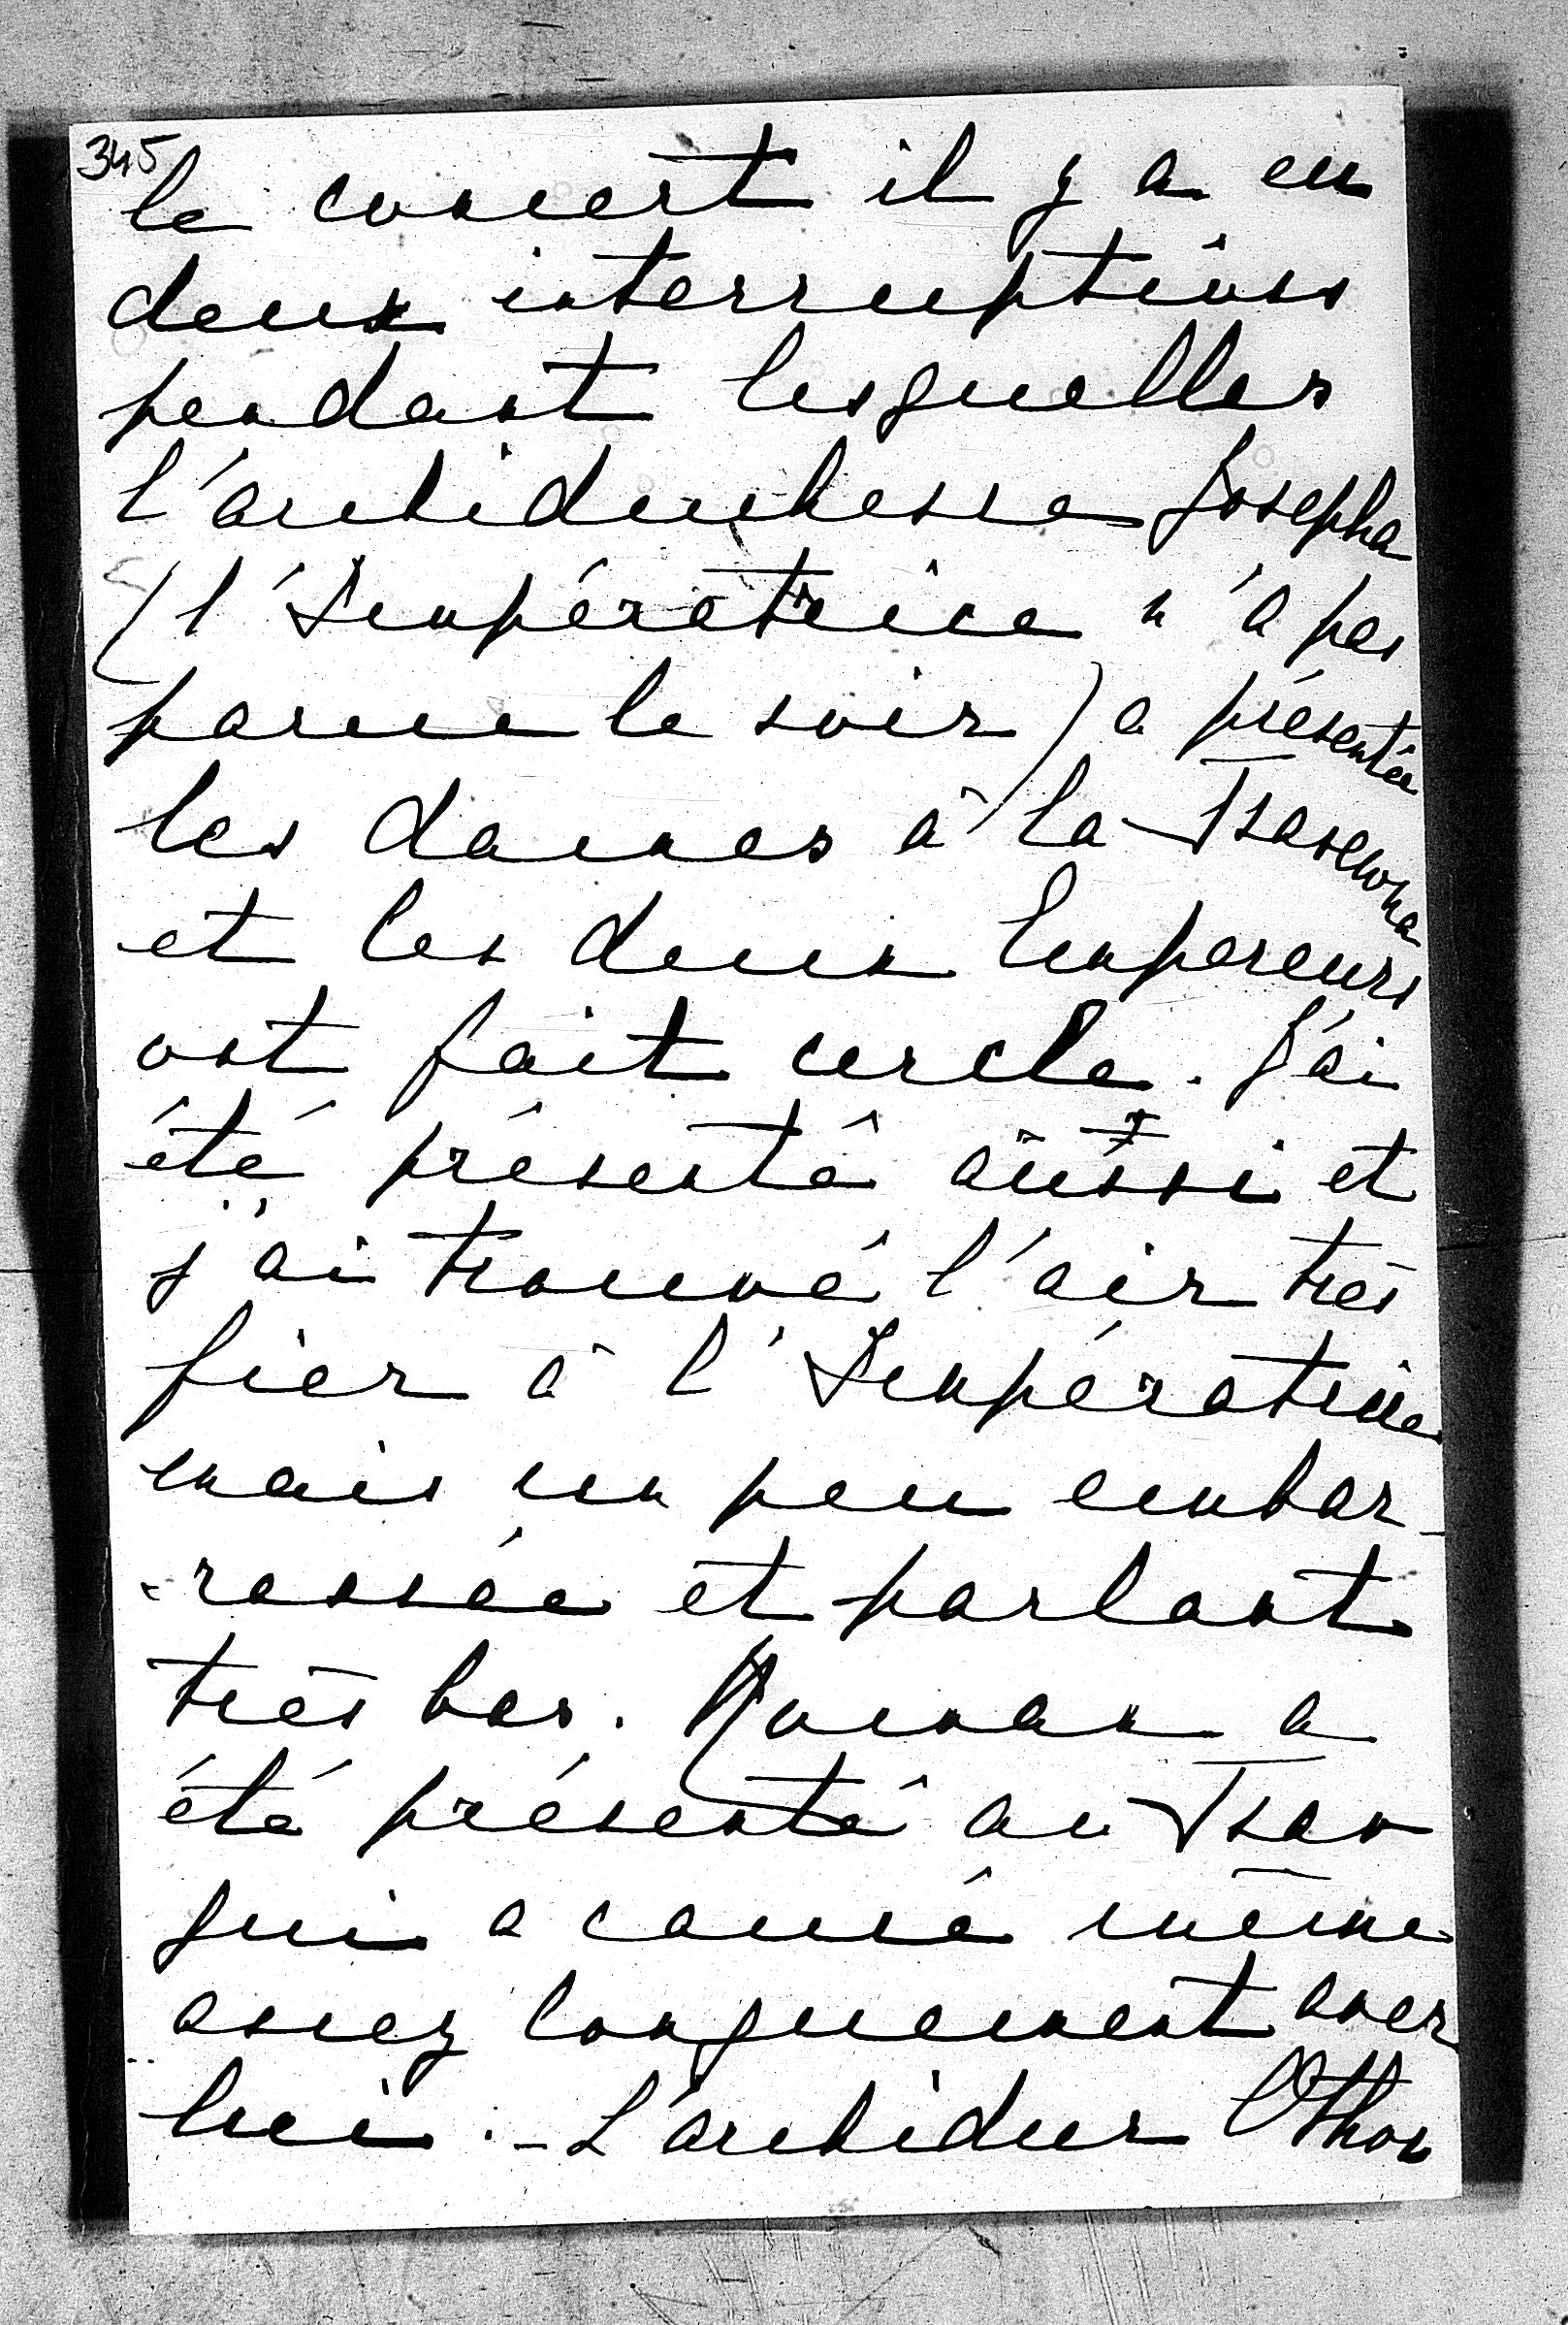 345
le concert il y a eu
deux interruptions
pendant lesquelles
l'archiduchesse Josepha
(l'Impératrice n'a pas
parue le soir) a présentée
les dames à la Tsarewna
et les deux Empereurs
ont fait cercle. J'ai
été présenté aussi et
j'ai trouvé l'air très
fier à l'Impératrice
mais un peu embar-
-rassée et parlant
très bas. Maman a
été présenté au Tsar
qui a causé même
assez longuement avec
lui. - L'archiduc Othon